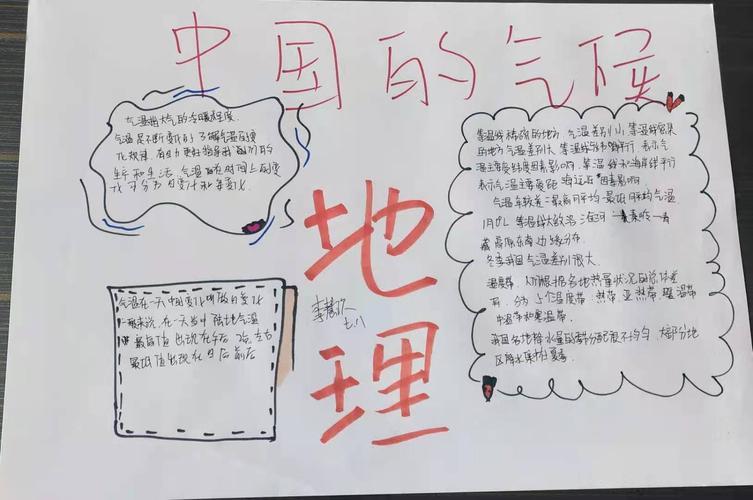 中国的气候
气温指大气的冷暖程度
气温是不断变化的 了解气温的变
化规律,有助更好指导我们的
生产和生活 气温在时间上的变
化可分为日变化和年变化
气温在一天中的变化叫做日变化
一般来说,在一天当中 陆地气温
最高值出现在午后2时左右
最低值出现在日出前后
地理
李慧
七八
等温线稀疏的地方 气温差别小,等温线密集
的地方气温差别大 等温线与纬线平行 表示气
温主要受纬度因素影响 等温线和海岸线平行
表示气温主要受距海远近因素影响
气温年较差=最高月平均气温-最低月平均气温
1月0℃等温线大致沿淮河—秦岭—青
藏高原东南边缘分布
冬季我国气温差别很大
温度带,人们根据各地热量状况的总体差
异,分5个温度带:热带、亚热带、暖温带
中温带和寒温带
我国各地降水量的季节分配很不均匀 大部分地
区降水集中在夏季